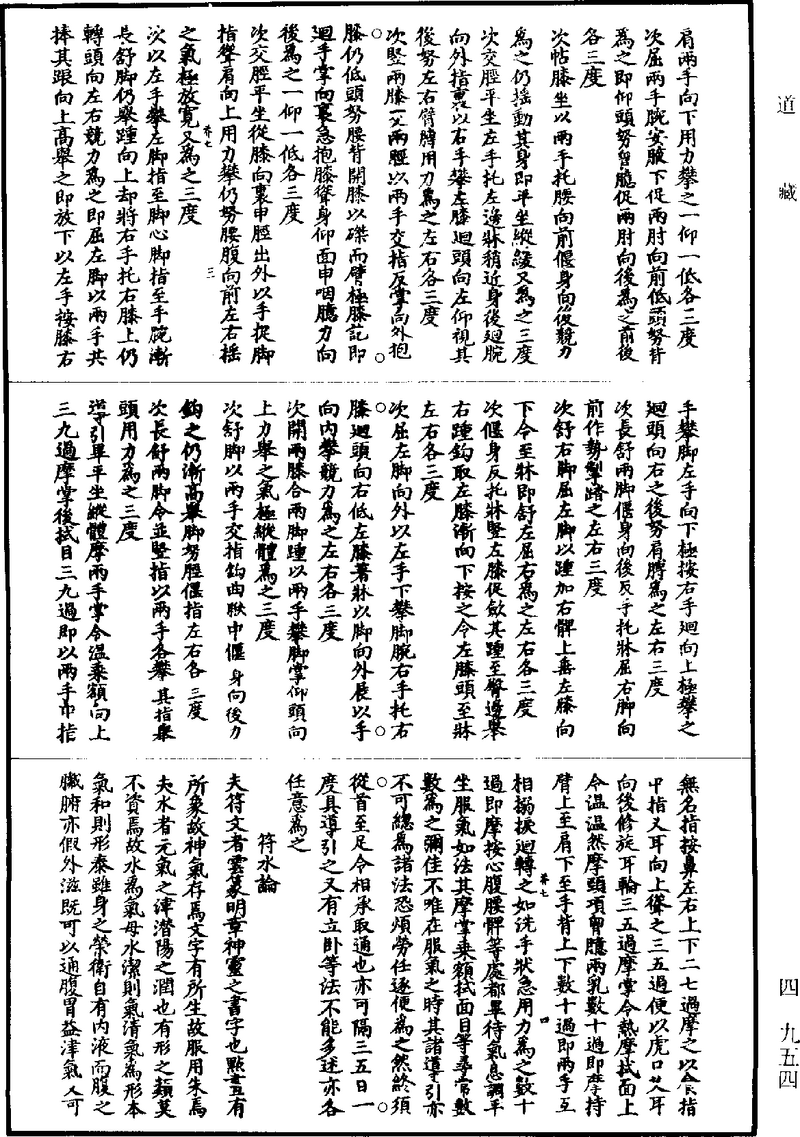 道藏
肩兩手向下用力攀之一仰一低各三度
次屈兩手腕安腋下促兩肘向前低頭努背
為之即仰頭努胷臆促兩肘向後為之前後
各三度
次帖膝坐以兩手托腰向前偃身向後競力
為之仍搖動其身即平坐縱緩又為之三度
次交脛平坐左手托左邊牀稍近身後迴腕
向外指裏以右手攀左膝迴頭向左仰視其
後努左右臂膊用力為之左右各三度
次竪兩膝叉兩脛以兩手交指反掌向外抱
膝仍低頭努腰背開膝以磔而臂極膝記即
迴手掌向裏急抱膝聳身仰面申咽臆力向
後為之一仰一低各三度
次交脛平坐從膝向裏申脛出外以手捉脚
指聳肩向上用力攀仍努腰腹向前左右搖
之氣極放寬又為之三度
次以左手攀左脚指至脚心脚指至手腕漸
長舒脚仍舉踵向上却將右手托右膝上仍
轉頭向左右競力為之即屈左脚以兩手共
捧其跟向上高舉之即放下以左手按膝右
手攀脚左手向下極按右手迴向上極攀之
迴頭向右之後努肩膊為之左右三度
次長舒兩脚偃身向後反手托牀屈右脚向
前作勢掣踏之左右三度
次舒右脚屈左脚以踵加右髀上垂左膝向
下令至牀即舒左屈右為之左右各三度
次偃身反托牀竪左膝促斂其踵至臀邊舉
右踵鈎取左膝漸向下按之令左膝頭至牀
左右各三度
次屈左脚向外以左手下攀脚腕右手托右
膝迴頭向右低左膝著牀以脚向外展以手
向内攀競力為之左右各三度
次開兩膝合兩脚踵以兩手攀脚掌仰頭向
上力舉之氣極縱體為之三度
次舒脚以兩手交指鈎曲䏶中偃身向後力
鈎之仍漸高舉脚努脛偃指左右各三度
次長舒兩脚令並竪指以兩手各攀其指舉
頭用力為之三度
導引畢平坐縱體摩兩手掌令温乘額向上
三九過摩掌後拭目三九過即以兩手中指
無名指按鼻左右上下二七過摩之以食指
中指叉耳向上聳之三五過便以虎口叉耳
向後修旋耳輪三五過摩掌令熱摩拭面上
令温温然摩頭項胷臆兩乳數十過即摩持
臂上至肩下至手背上下數十過即兩手互
相搦捩迴轉之如洗手狀急用力為之數十
過即摩按心腹腰髀等處都畢待氣息調平
坐服氣如法其摩掌乘額拭面目等尋常數
數為之彌佳不唯在服氣之時其諸導引亦
不可總為諸法恐煩勞任逐便為之然終須
從首至足令相承取通也亦可隔三五日一
度具導引之又有立卧等法不能多述亦各
任意為之
符水論
夫符文者雲篆明章神靈之書字也點畫有
所象故神氣存焉文字有所生故服用朱焉
夫水者元氣之津潛陽之潤也有形之類莫
不資焉故水為氣母水潔則氣清氣為形本
氣和則形泰雖身之榮衛自有内液而腹之
臟腑亦假外滋既可以通腹胃益津氣又可
四 九五四